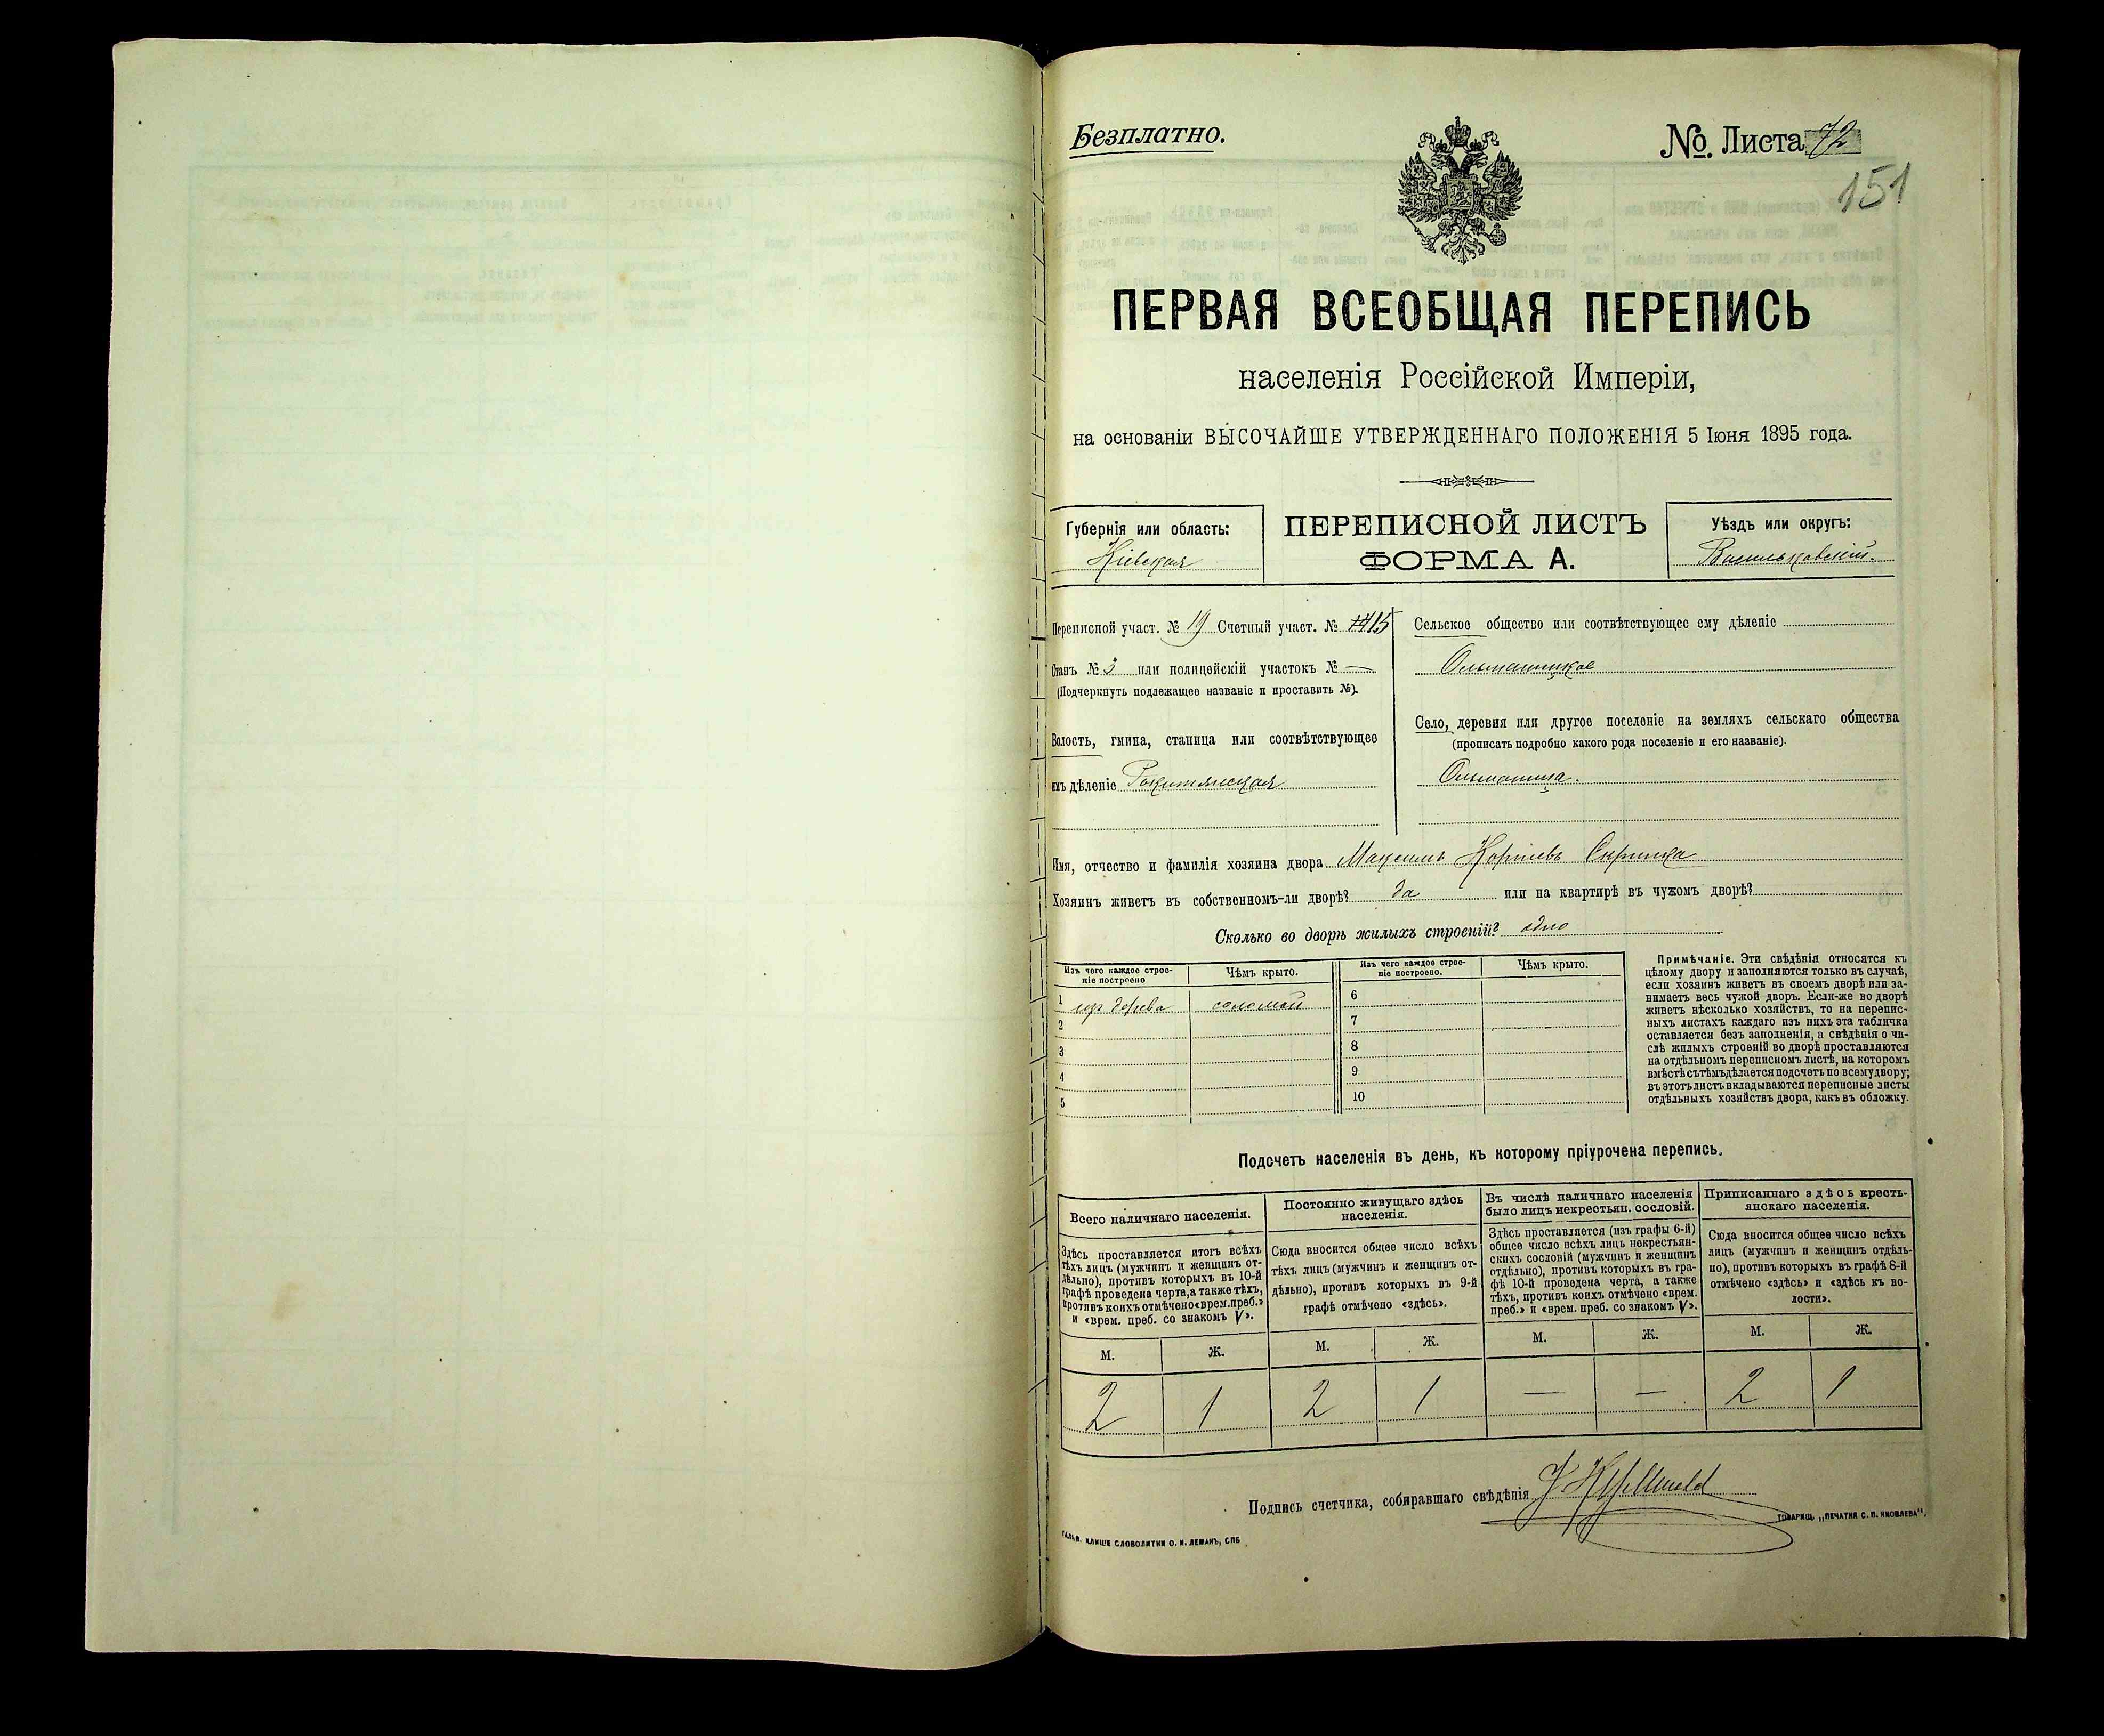 Безплатно.
№. Листа 72
151
ПЕРВАЯ ВСЕОБЩАЯ ПЕРЕПИСЬ
населенія Россійской Имперіи,
на основаніи ВЫСОЧАЙШЕ УТВЕРЖДЕННАГО ПОЛОЖЕНІЯ 5 Іюня 1895 года.
Губернія или область:
Кіевская
ПЕРЕПИСНОЙ ЛИСТЪ
ФОРМА А.
Уѣздъ или округъ:
Васильковскій.
Переписной участ. № 19 Счетный участ. № 15
Станъ № 3 или полицейскій участокъ № —
(Подчеркнуть подлежащее названіе и проставить №).
Волость, гмина, станица или соотвѣтствующее
имъ дѣленіе Рокитянская
Сельское общество или соотвѣтствующее ему дѣленіе
Ольшаницкое
Село, деревня или другое поселеніе на земляхъ сельскаго общества
(прописать подробно какого рода поселеніе и его названіе).
Ольшаница.
Имя, отчество и фамилія хозяина двора Максимъ Корніевъ
Хозяинъ живетъ въ собственномъ-ли дворѣ? да или на квартирѣ въ чужомъ дворѣ?
Сколько во дворѣ жилыхъ строеній? одно
Изъ чего каждое строе-
ніе построено
Чѣмъ крыто.
Изъ чего каждое строе-
ніе построено.
Чѣмъ крыто.
1 изъ дерева соломой
2
3
4
5
6
7
8
9
10
Примѣчаніе. Эти свѣдѣнія относятся къ
цѣлому двору и заполняются только въ случаѣ,
если хозяинъ живетъ въ своемъ дворѣ или за-
нимаетъ весь чужой дворъ. Если-же во дворѣ
живетъ нѣсколько хозяйствъ, то на перепис-
ныхъ листахъ каждаго изъ нихъ эта табличка
оставляется безъ заполненія, а свѣдѣнія о чи-
слѣ жилыхъ строеній во дворѣ проставляются
на отдѣльномъ переписномъ листѣ, на которомъ
вмѣстѣ съ тѣмъ дѣлается подсчетъ по всему двору;
въ этотъ листъ вкладываются переписные листы
отдѣльныхъ хозяйствъ двора, какъ въ обложку.
Подсчетъ населенія въ день, къ которому пріурочена перепись.
Всего наличнаго населенія.
Здѣсь проставляется итогъ всѣхъ
тѣхъ лицъ (мужчинъ и женщинъ от-
дѣльно), противъ которыхъ въ 10-й
графѣ проведена черта, а также тѣхъ,
противъ коихъ отмѣчено «врем. преб.»
и «врем. преб. со знакомъ V».
Постоянно живущаго здѣсь
населенія.
Сюда вносится общее число всѣхъ
тѣхъ лицъ (мужчинъ и женщинъ от-
дѣльно), противъ которыхъ въ 9-й
графѣ отмѣчено «здѣсь».
Въ числѣ наличнаго населенія
было лицъ некрестьян. сословій.
Здѣсь проставляется (изъ графы 6-й)
общее число всѣхъ лицъ некрестьян-
скихъ сословій (мужчинъ и женщинъ
отдѣльно), противъ которыхъ въ гра-
фѣ 10-й проведена черта, а также
тѣхъ, противъ коихъ отмѣчено «врем.
преб.» и «врем. преб. со знакомъ V».
Приписаннаго здѣсь кресть-
янскаго населенія.
Сюда вносится общее число всѣхъ
лицъ (мужчинъ и женщинъ отдѣль-
но), противъ которыхъ въ графѣ 8-й
отмѣчено «здѣсь» и «здѣсь къ во-
лости».
М. Ж. М. Ж. М. Ж. М. Ж.
2 1 2 1 — — 2 1
Подпись счетчика, собиравшаго свѣдѣнія
ГАЛЬВ. КЛИШЕ СЛОВОЛИТНИ О. И. ЛЕМАНЪ, СПБ
ТОВАРИЩ. „ПЕЧАТНЯ С. П. ЯКОВЛЕВА".